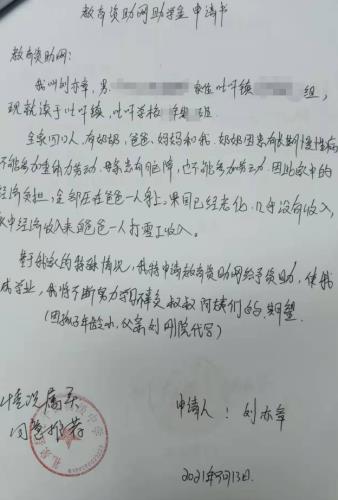 教育资助网助学金申请书
教育资助网：
我叫刘亦章，男， 家住叱干镇 组，
现就读于叱干镇，叱干学校 班
全家四口人，有奶奶、爸爸、妈妈和我，奶奶因患有长期慢性病
不能参加重体力劳动，母亲患有脑障，也不能参加劳动，因此家中的
经济负担，全部压在爸爸一人身上，果园已经老化，几乎没有收入，
家中经济收入来自爸爸一人打零工收入。
基于我家的特殊情况，我特申请教育资助网给予资助，使我
成学业，我将不断努力学习不辜负叔叔阿姨们的期望
（因孩子年龄小，父亲刘刚院代写）
情况属实
同意推荐
申请人：刘亦章
2021年 月13日